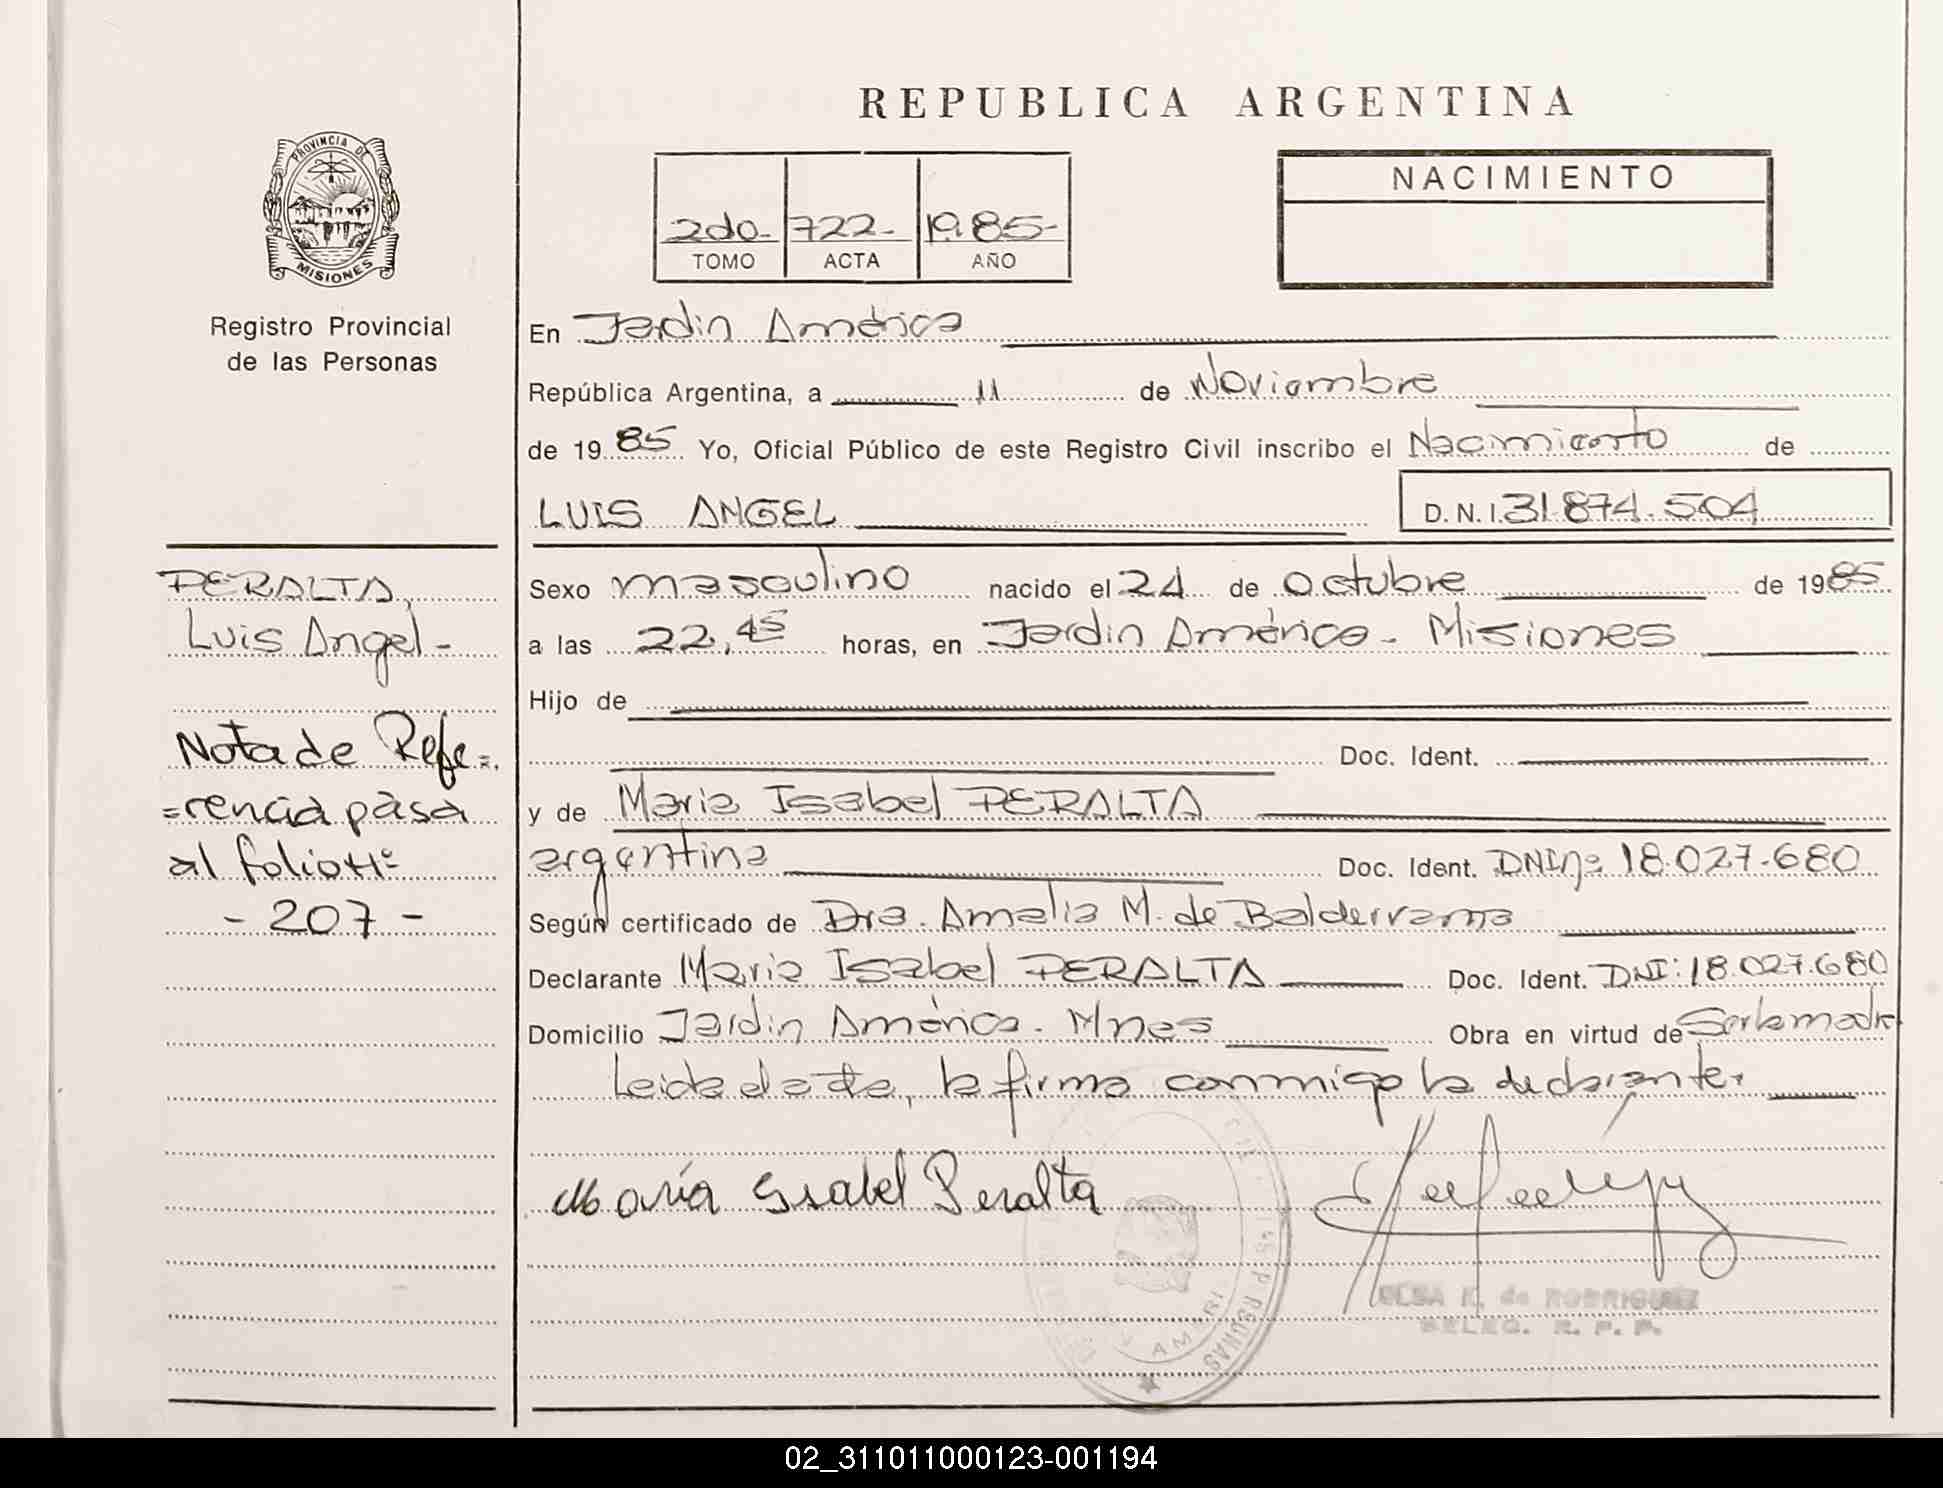 REPUBLICA ARGENTINA
PROVINCIA DE
MISIONES
Registro Provincial
de las Personas
2do- 722- 1985-
TOMO ACTA AÑO
NACIMIENTO
En Jardin América
República Argentina, a 11 de Noviembre
de 19 85 Yo, Oficial Público de este Registro Civil inscribo el Nacimiento de
LUIS ANGEL D.N.I. 31.874.504
PERALTA,
Luis Angel-
Nota de Refe=
=rencia pàsa
al folio Nº
- 207 -
Sexo masculino nacido el 24 de Octubre de 1985
a las 22,45 horas, en Jardin América - Misiones
Hijo de
Doc. Ident.
y de Maria Isabel PERALTA
argentina Doc. Ident. DNI nº 18.027.680
Según certificado de Dra. Amalia M. de Balderrama
Declarante Maria Isabel PERALTA Doc. Ident. DNI: 18.027.680
Domicilio Jardin América - Mnes Obra en virtud de Ser la madre
Leida el acta, la firma conmigo la declarante.
María Isabel Peralta
ELSA K. de RODRIGUEZ
DELEG. R. P. P.
02_311011000123-001194